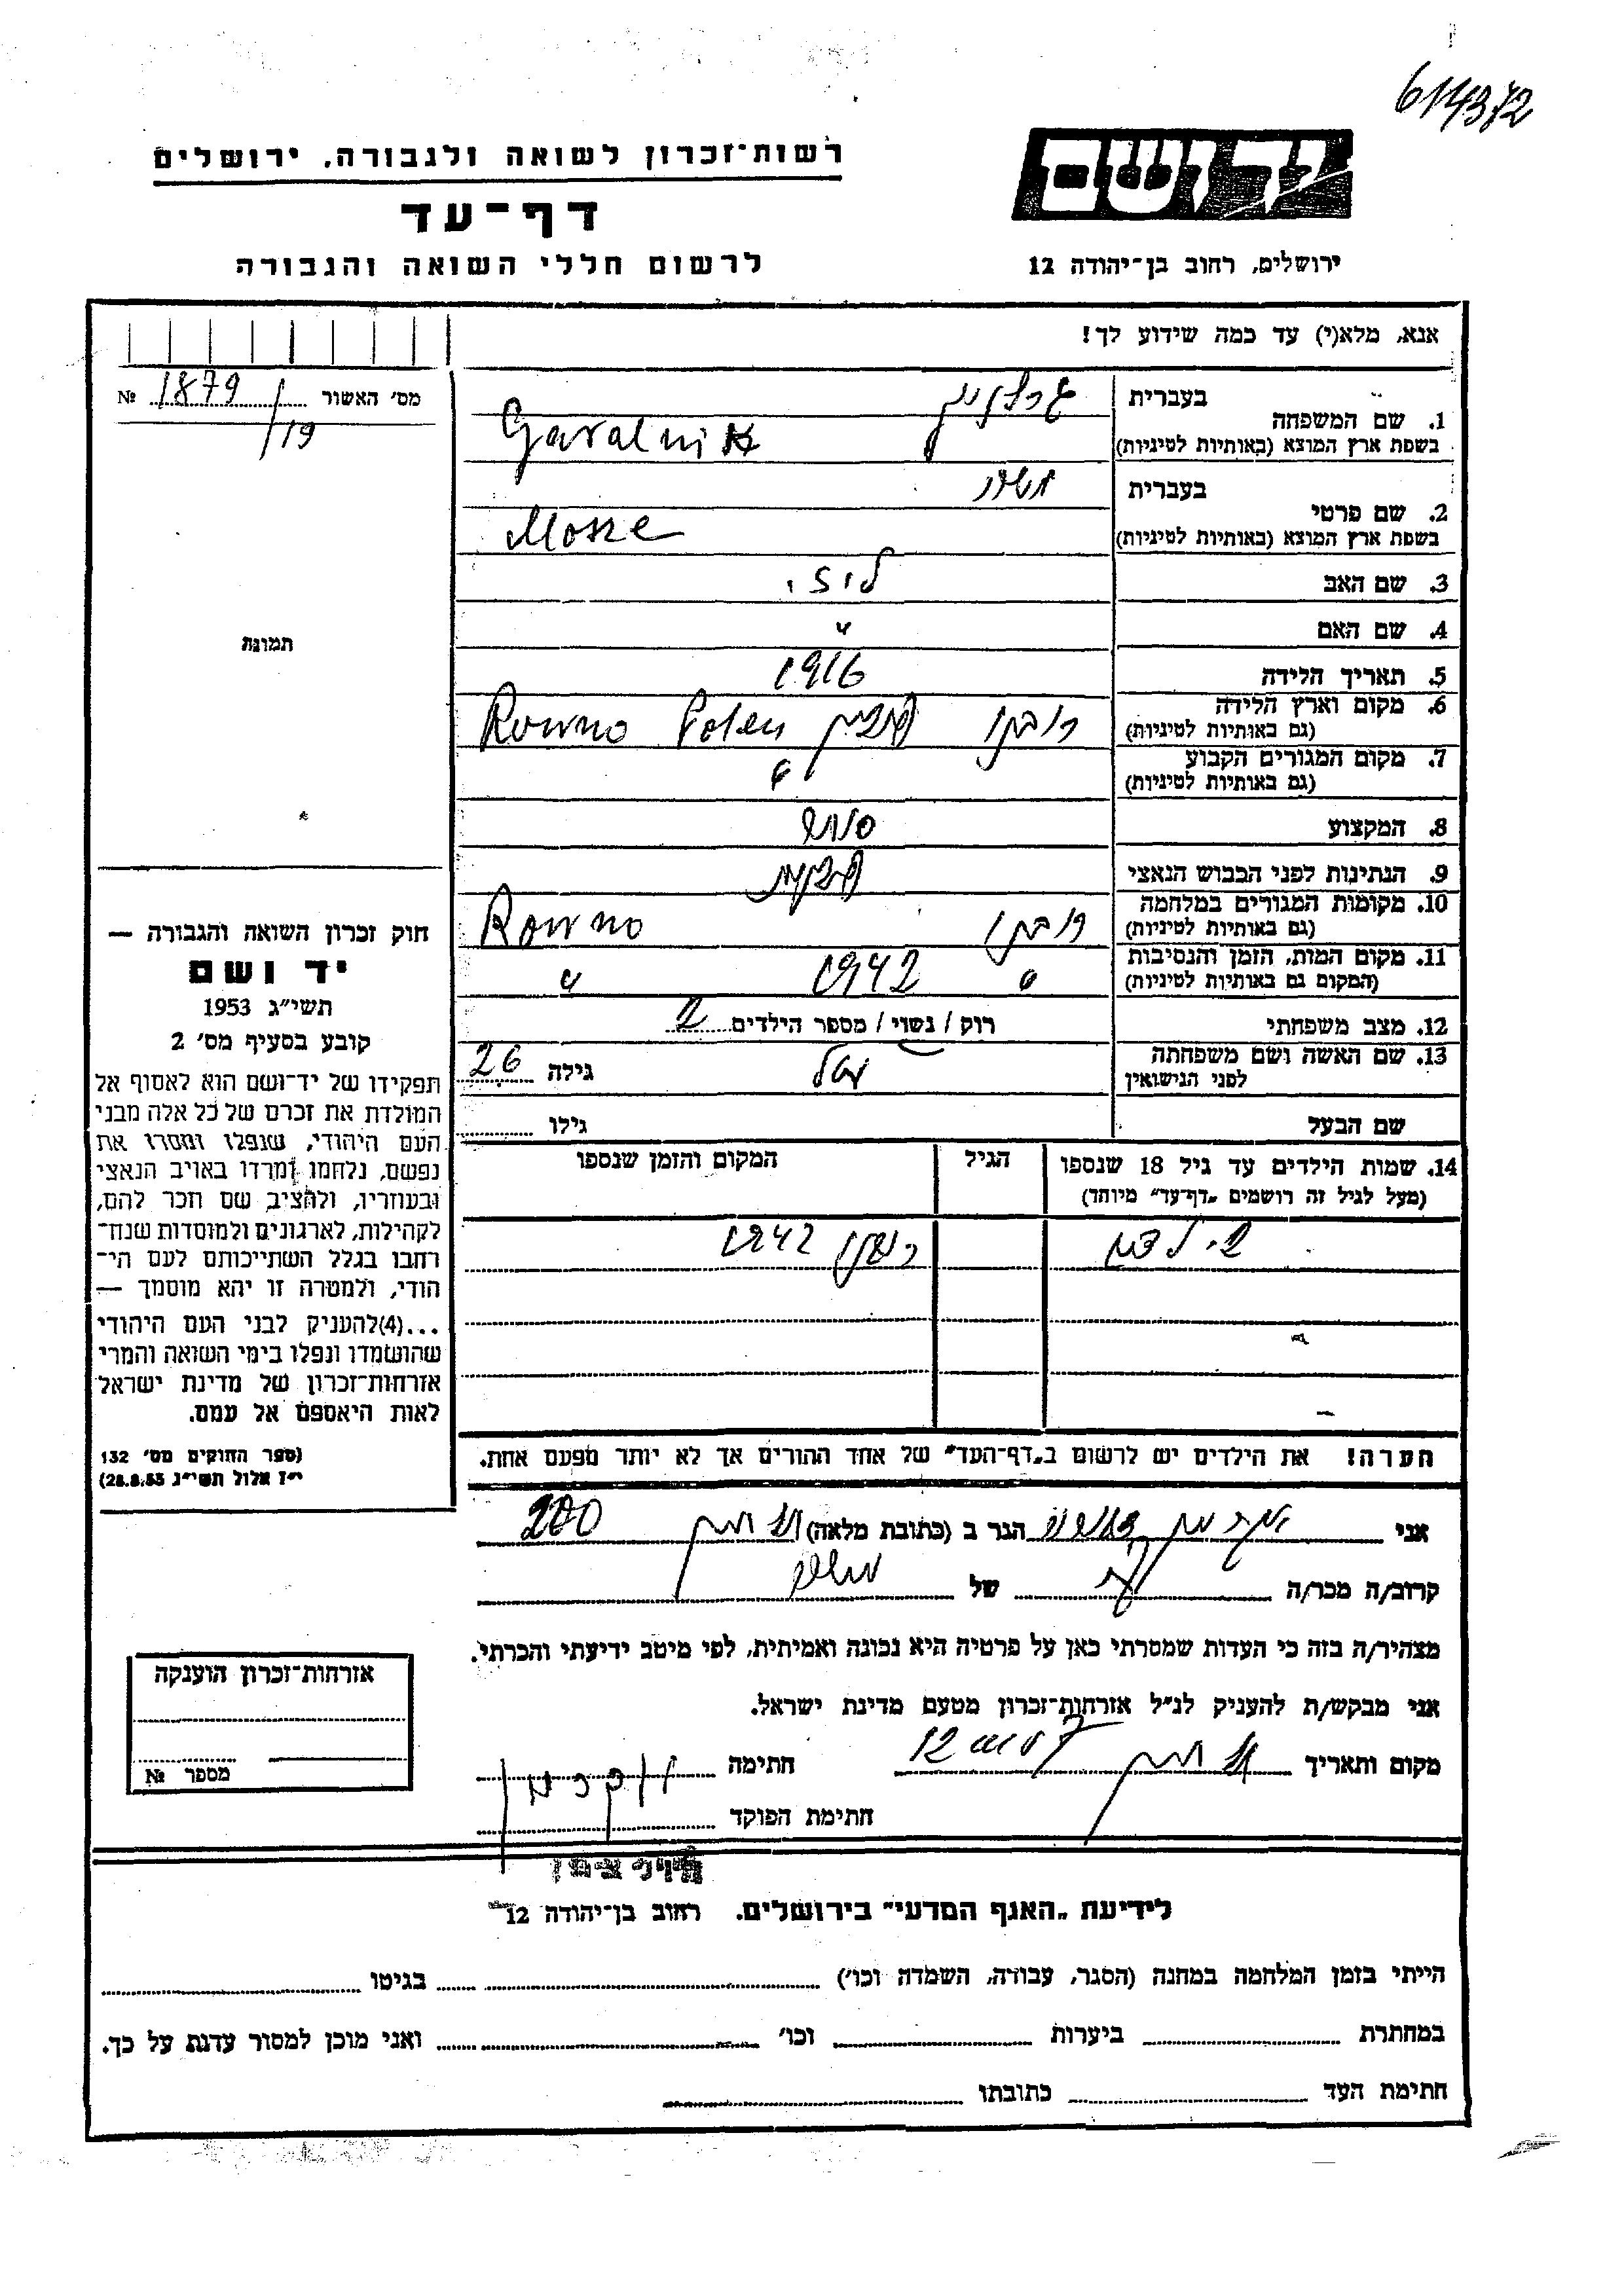 614372
רשות־זכרון לשואה ולגבורה, ירושלים
יד ושם
דף־עד
לרשום חללי השואה והגבורה
ירושלים, רחוב בן־יהודה 12
אנא, מלא(י) עד כמה שידוע לך!
מס' האשור 1879/19 №
1. שם המשפחה
בעברית
בשפת ארץ המוצא (באותיות לטיניות) Garalnik
2. שם פרטי
בעברית משה
בשפת ארץ המוצא (באותיות לטיניות) Mosze
3. שם האב
4. שם האם "
5. תאריך הלידה 1916
6. מקום וארץ הלידה רובנו פולין Rowno Polen
(גם באותיות לטיניות)
7. מקום המגורים הקבוע "
(גם באותיות לטיניות)
8. המקצוע סוחר
9. הנתינות לפני הכבוש הנאצי פולנית
10. מקומות המגורים במלחמה רובנו Rowno
(גם באותיות לטיניות)
11. מקום המות, הזמן והנסיבות " 1942 "
(המקום גם באותיות לטיניות)
12. מצב משפחתי רוק / נשוי / מספר הילדים 2
13. שם האשה ושם משפחתה גילה 26
לפני הנישואין
שם הבעל גילו
14. שמות הילדים עד גיל 18 שנספו הגיל המקום והזמן שנספו
(מעל לגיל זה רושמים "דף־עד" מיוחד)
2 ילדים רובנו 1942
הערה! את הילדים יש לרשום ב"דף־העד" של אחד ההורים אך לא יותר מפעם אחת.
תמונה
חוק זכרון השואה והגבורה —
יד ושם
תשי"ג 1953
קובע בסעיף מס' 2
תפקידו של יד־ושם הוא לאסוף אל
המולדת את זכרם של כל אלה מבני
העם היהודי, שנפלו ומסרו את
נפשם, נלחמו ומרדו באויב הנאצי
ובעוזריו, ולהציב שם וזכר להם,
לקהילות, לארגונים ולמוסדות שנח־
רבו בגלל השתייכותם לעם הי־
הודי, ולמטרה זו יהא מוסמך —
...(4) להעניק לבני העם היהודי
שהושמדו ונפלו בימי השואה והמרי
אזרחות־זכרון של מדינת ישראל
לאות היאספם אל עמם.
(ספר החוקים מס' 132
י"ז אלול תשי"ג 28.8.53)
אני הגר ב (כתובת מלאה) 200
קרוב/ה מכר/ה של
מצהיר/ה בזה כי העדות שמסרתי כאן על פרטיה היא נכונה ואמיתית, לפי מיטב ידיעתי והכרתי.
אני מבקש/ת להעניק לנ"ל אזרחות־זכרון מטעם מדינת ישראל.
מקום ותאריך 12 חתימה
חתימת הפוקד
אזרחות־זכרון הוענקה
מספר №
לידיעת "האגף המדעי" בירושלים. רחוב בן־יהודה 12
הייתי בזמן המלחמה במחנה (הסגר, עבודה, השמדה וכו') בגיטו
במחתרת ביערות וכו' ואני מוכן למסור עדות על כך.
חתימת העד כתובתו